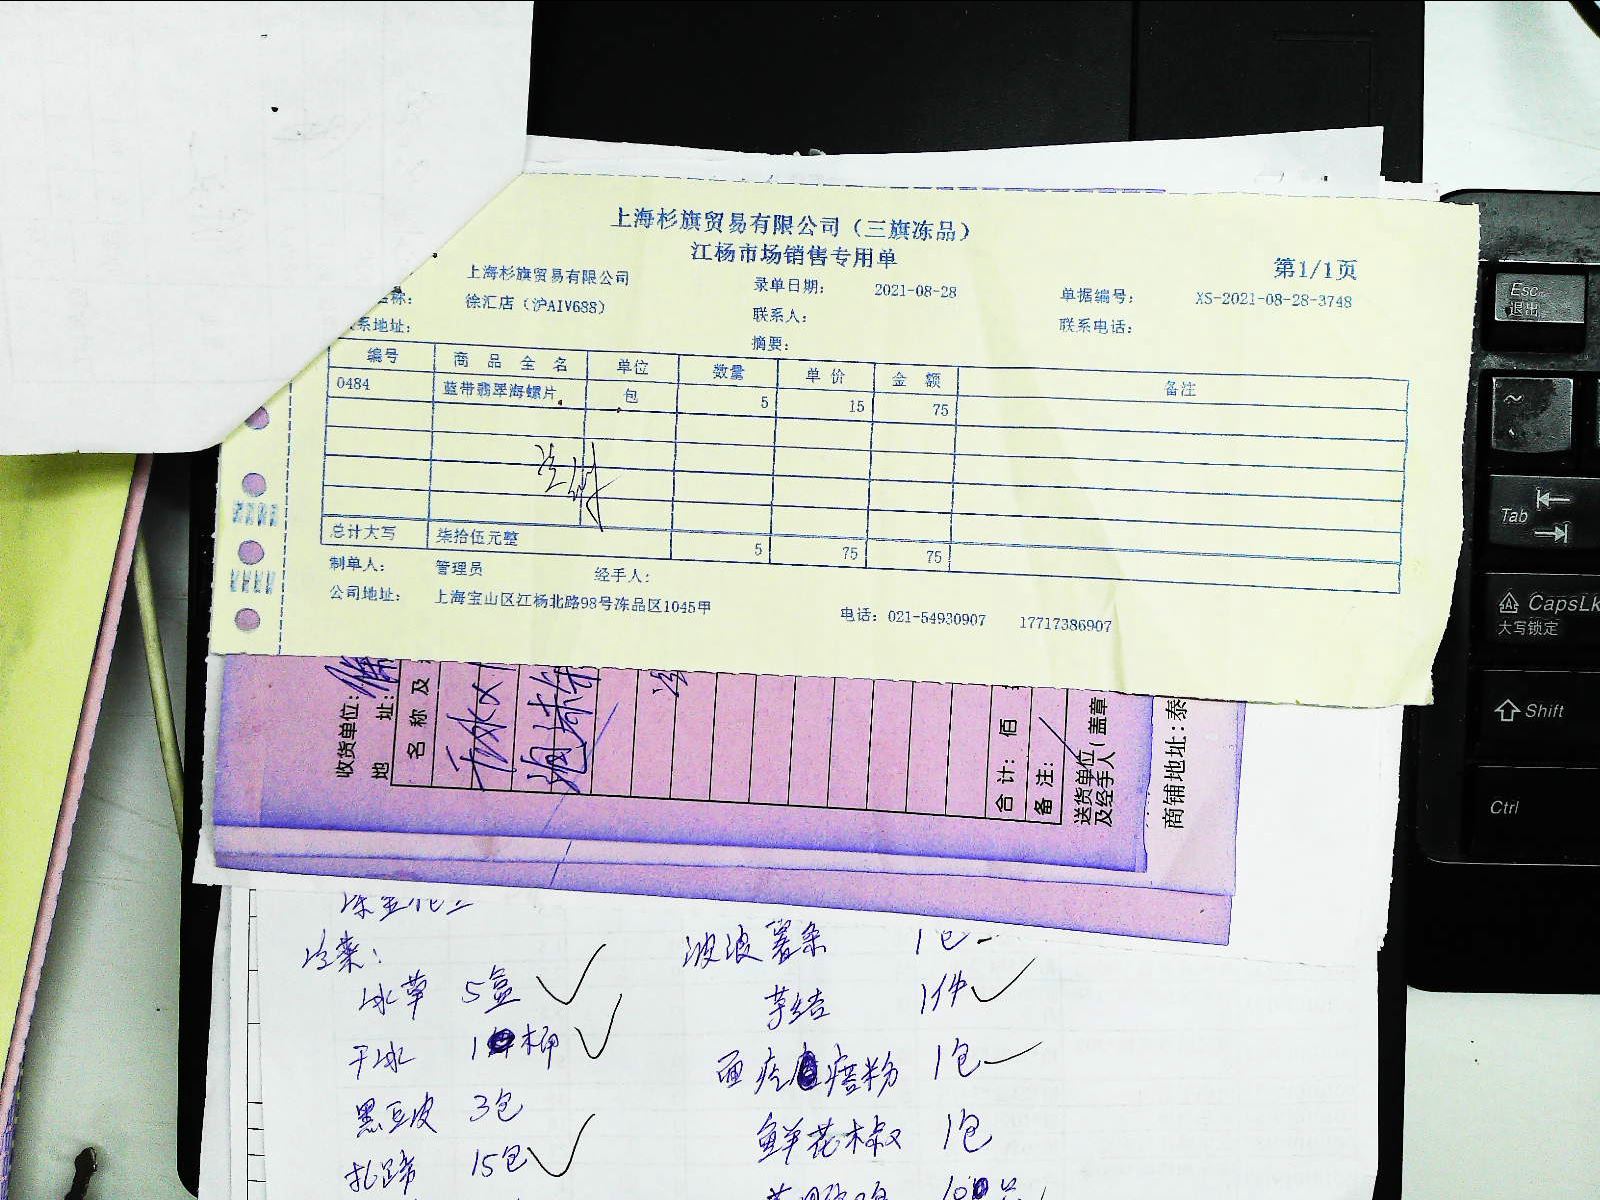 上海杉旗贸易有限公司（三旗冻品）
江杨市场销售专用单
第1/1页
上海杉旗贸易有限公司 录单日期： 2021-08-28 单据编号： XS-2021-08-28-3748
名称： 徐汇店（沪AIV688） 联系人： 联系电话：
系地址： 摘要：
编号 商品全名 单位 数量 单价 金额 备注
0484 蓝带翡翠海螺片 包 5 15 75
总计大写 柒拾伍元整 5 75 75
制单人： 管理员 经手人：
公司地址： 上海宝山区江杨北路98号冻品区1045甲 电话：021-54930907 17717386907
收货单位：
地 址：
名称及
干冰
合计： 佰
备注：
送货单位
及经手人（盖章
商铺地址：泰
冷菜：
冰草 5盒
干冰 1桶
黑豆皮 3包
扎蹄 15包
波浪薯条 1包
芋结 1件
面疙瘩粉 1包
鲜花椒 1包
Esc
退出
~
Tab
CapsLk
大写锁定
Shift
Ctrl